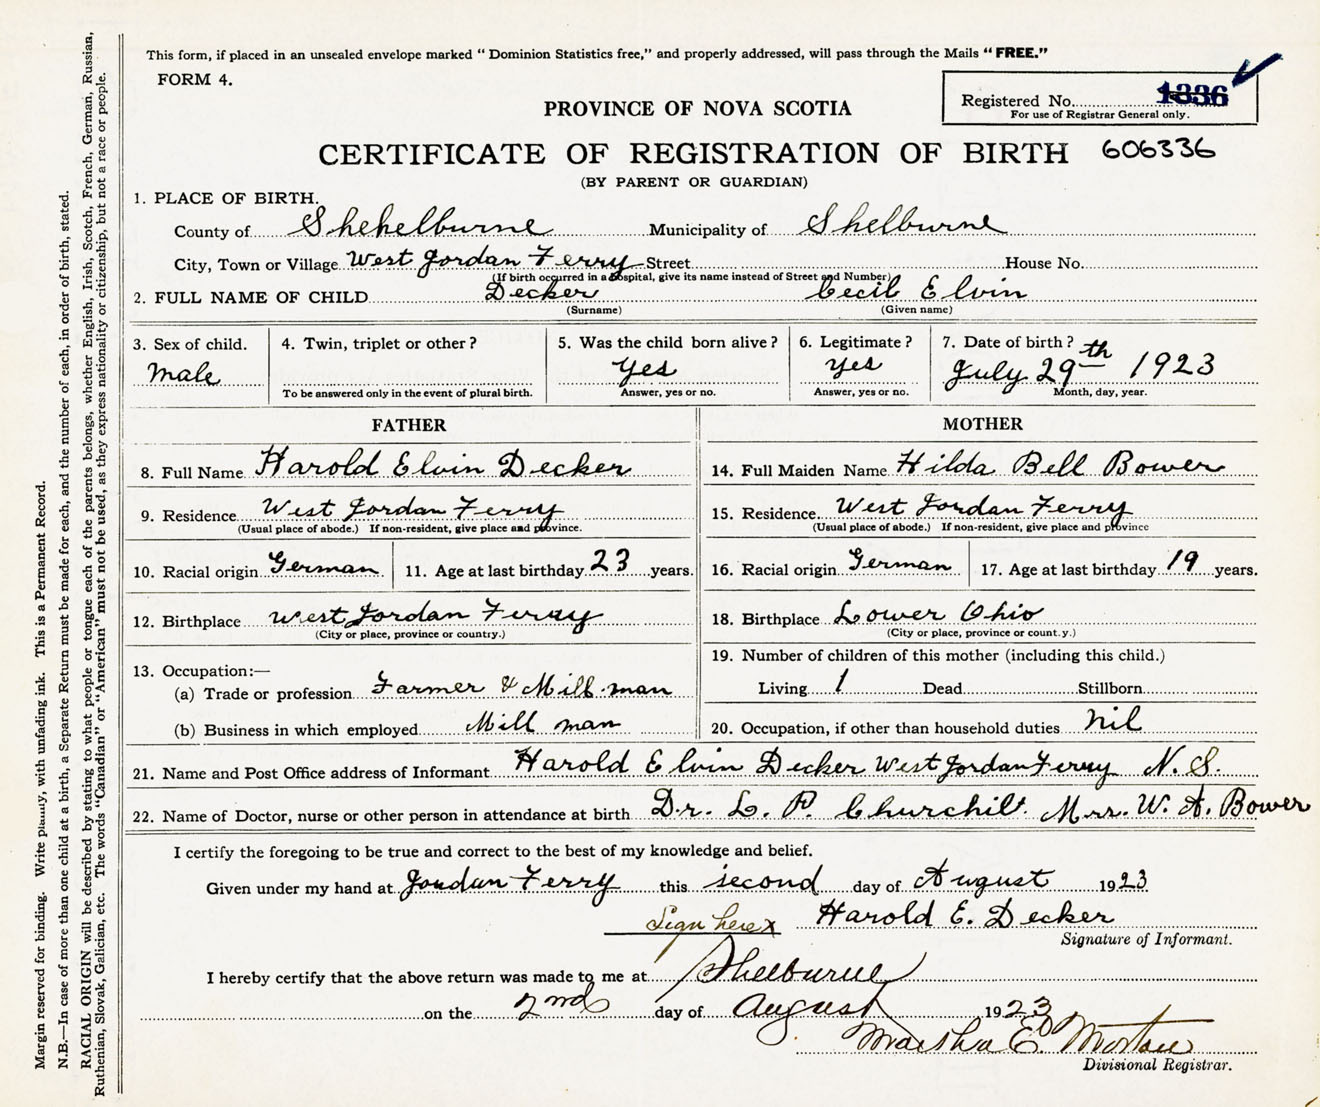 This form, if placed in an unsealed envelope marked “ Dominion Statistics free,” and properly addressed, will pass through the Mails “ FREE.”
FORM 4.
Registered No. 1336
For use of Registrar General only.
PROVINCE OF NOVA SCOTIA
CERTIFICATE OF REGISTRATION OF BIRTH 606336
(BY PARENT OR GUARDIAN)
1. PLACE OF BIRTH.
County of Shehelburne Municipality of Shelburne
City, Town or Village West Jordan Ferry Street House No.
(If birth occurred in a hospital, give its name instead of Street and Number)
2. FULL NAME OF CHILD Decker Cecil Elvin
(Surname) (Given name)
3. Sex of child. 4. Twin, triplet or other? 5. Was the child born alive? 6. Legitimate? 7. Date of birth?
Male Yes Yes July 29th 1923
To be answered only in the event of plural birth. Answer, yes or no. Answer, yes or no. Month, day, year.
FATHER
8. Full Name Harold Elvin Decker
9. Residence West Jordan Ferry
(Usual place of abode.) If non-resident, give place and province.
10. Racial origin German 11. Age at last birthday 23 years.
12. Birthplace West Jordan Ferry
(City or place, province or country.)
13. Occupation:—
(a) Trade or profession Farmer & Mill man
(b) Business in which employed Mill man
MOTHER
14. Full Maiden Name Hilda Bell Bower
15. Residence West Jordan Ferry
(Usual place of abode.) If non-resident, give place and province
16. Racial origin German 17. Age at last birthday 19 years.
18. Birthplace Lower Ohio
(City or place, province or count.y.)
19. Number of children of this mother (including this child.)
Living 1 Dead Stillborn
20. Occupation, if other than household duties nil
21. Name and Post Office address of Informant Harold Elvin Decker West Jordan Ferry N. S.
22. Name of Doctor, nurse or other person in attendance at birth Dr. L. P. Churchill. Mrs. W. A. Bower
I certify the foregoing to be true and correct to the best of my knowledge and belief.
Given under my hand at Jordan Ferry this second day of August 1923
Sign here x Harold E. Decker
Signature of Informant.
I hereby certify that the above return was made to me at Shelburne
on the 2nd day of August 1923
Martha E. Morton
Divisional Registrar.
Margin reserved for binding. Write plainly, with unfading ink. This is a Permanent Record.
N.B.—In case of more than one child at a birth, a Separate Return must be made for each, and the number of each, in order of birth, stated.
RACIAL ORIGIN will be described by stating to what people or tongue each of the parents belongs, whether English, Irish, Scotch, French, German, Russian,
Ruthenian, Slovak, Galician, etc. The words “Canadian” or “American” must not be used, as they express nationality or citizenship, but not a race or people.